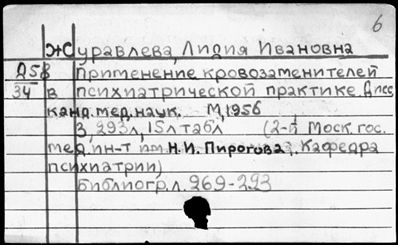 6
Журавлева, Лидия Ивановна
Д58 Применение кровозаменителей
34 в психиатрической практике. Дисс.
канд. мед. наук. М, 1956
3, 293 л, 15 л табл (2-й Моск. гос.
мед. ин-т им Н.И. Пирогова. Кафедра
психиатрии)
Библиогр. л. 269-293